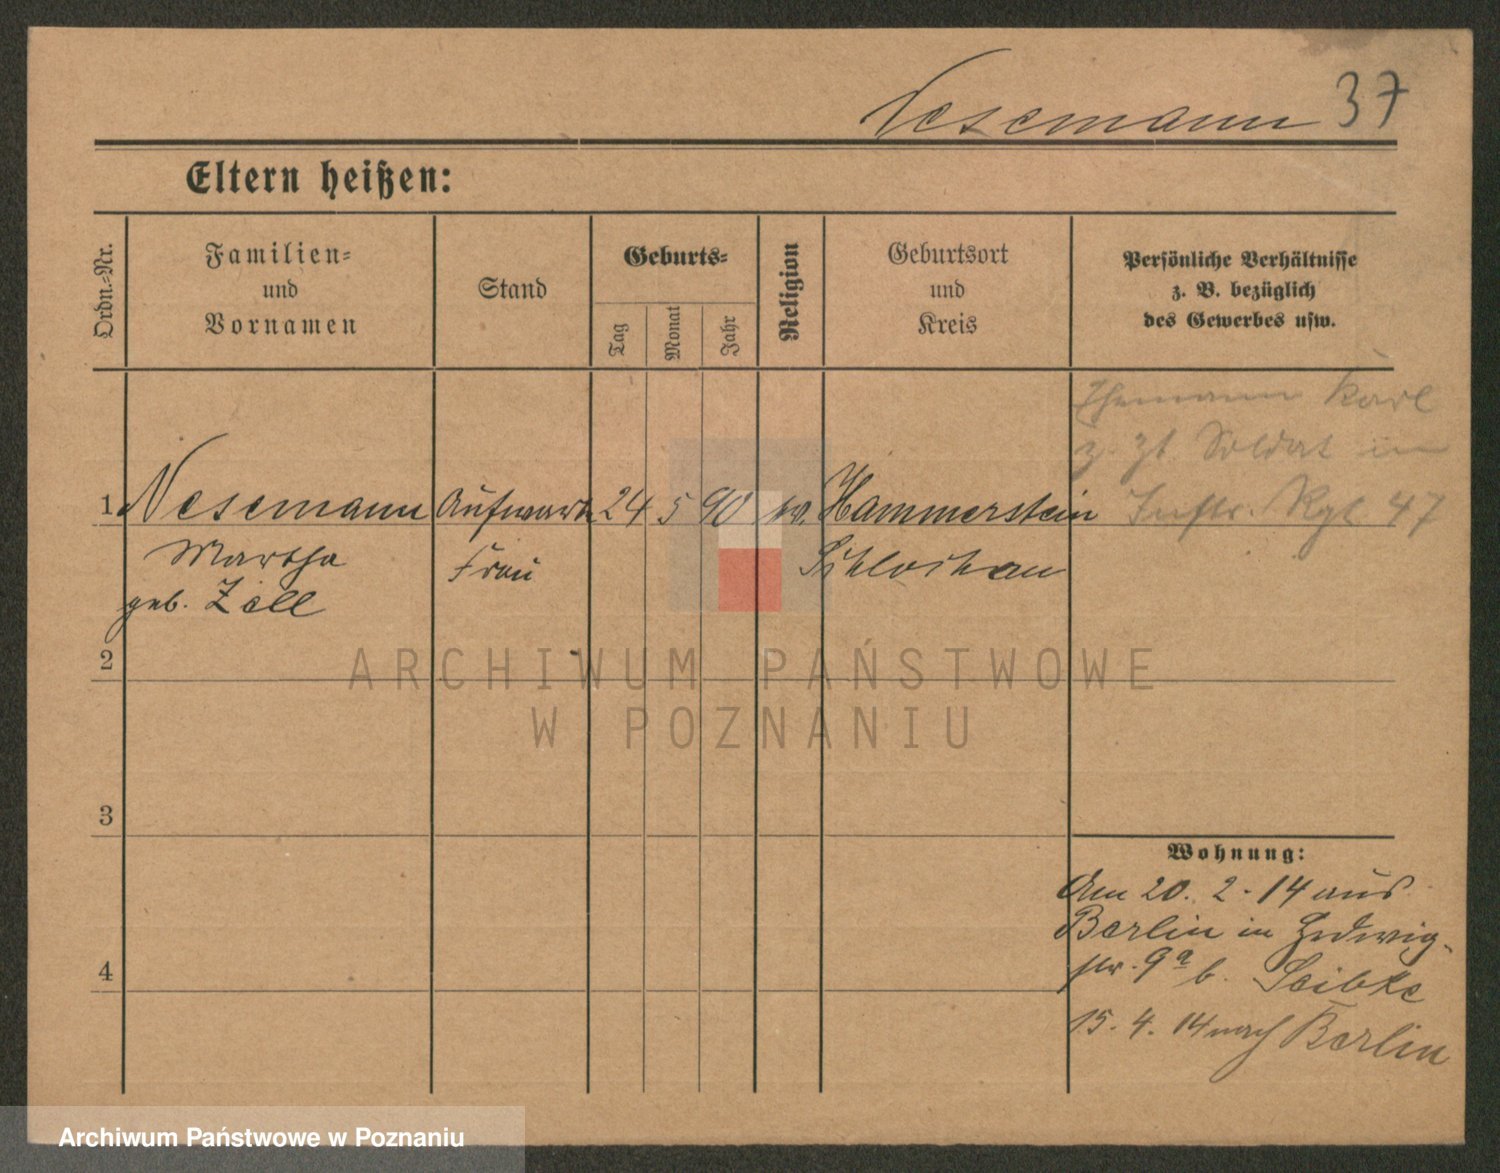 Nesemann 37
Eltern heißen:
Ordn.-Nr.
Familien- und Vornamen
Stand
Geburts-
Tag
Monat
Jahr
Religion
Geburtsort und Kreis
Persönliche Verhältnisse
z. B. bezüglich
des Gewerbes usw.
Ehemann Karl
z. Zt. Soldat im
Inftr. Rgt 47
1 Nesemann Aufwarte 24 5 90 ev. Hammerstein
Martha Frau Schlochau
geb. Zell
2
3
4
Wohnung:
Am 20. 2. 14 aus
Berlin in Hedwig-
str. 9a b. Seibke
15. 4. 14 nach Berlin
ARCHIWUM PAŃSTWOWE
W POZNANIU
Archiwum Państwowe w Poznaniu